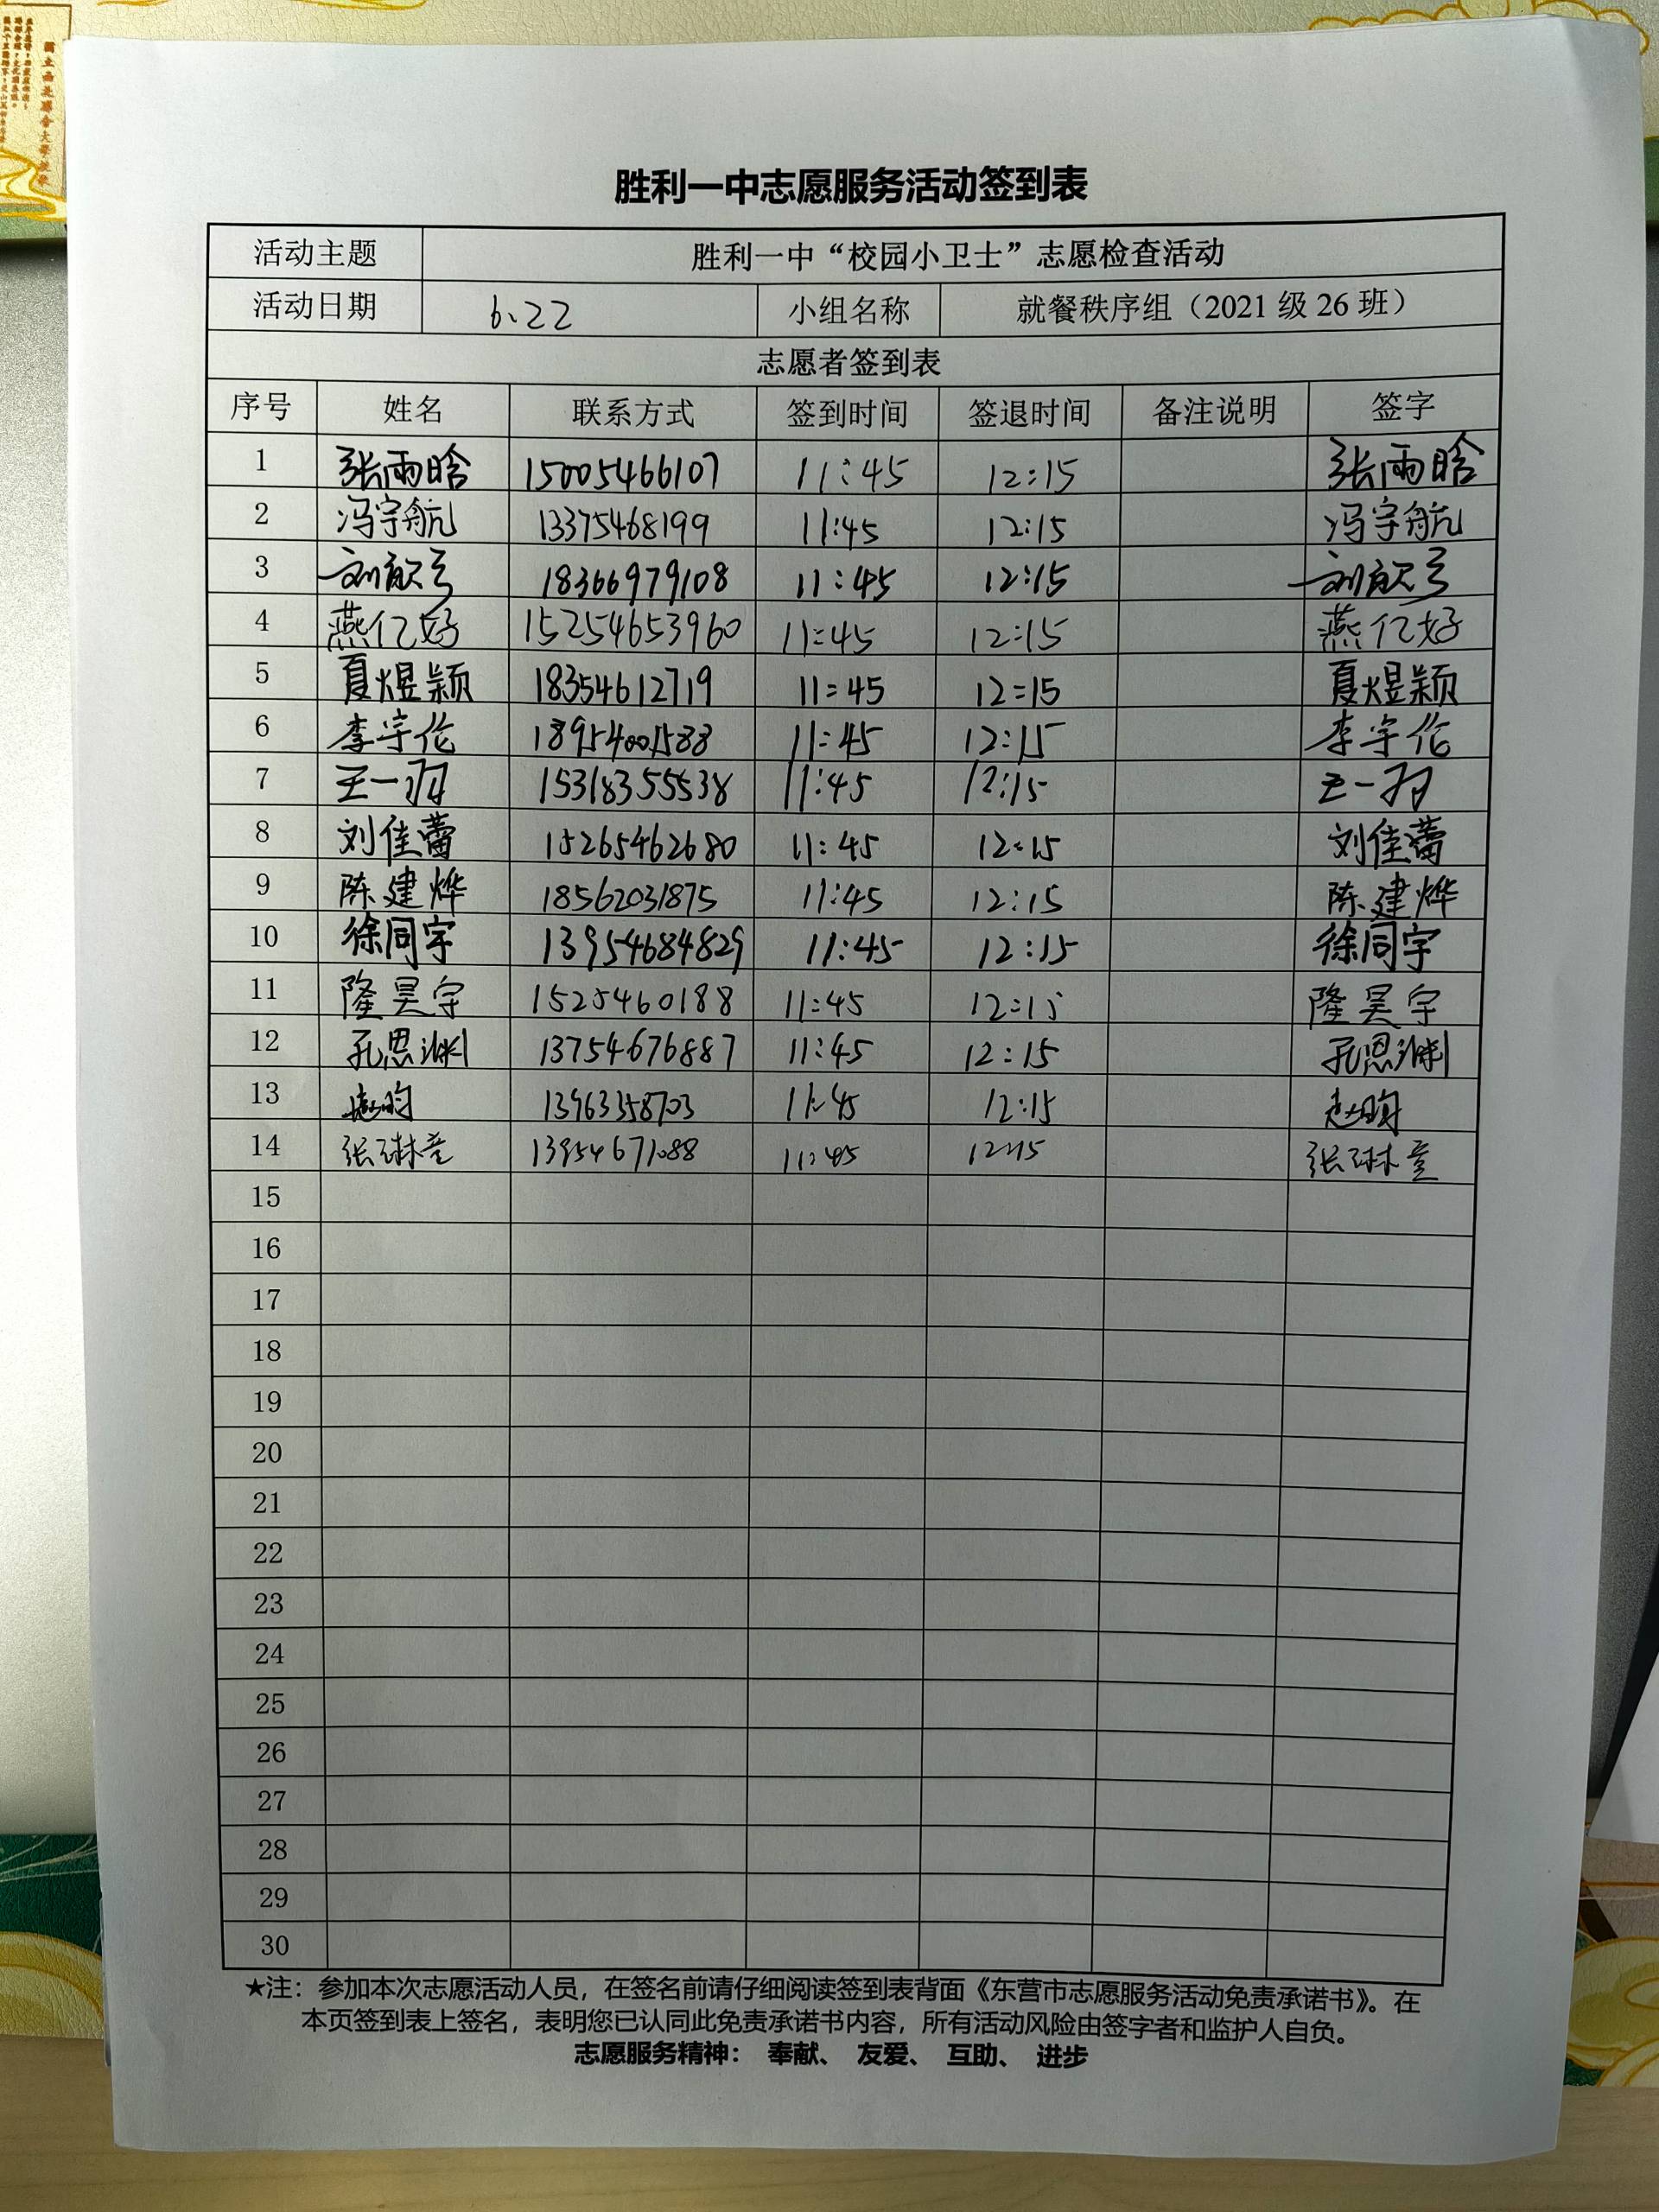 胜利一中志愿服务活动签到表
活动主题 胜利一中“校园小卫士”志愿检查活动
活动日期 6、22 小组名称 就餐秩序组（2021 级 26 班）
志愿者签到表
序号 姓名 联系方式 签到时间 签退时间 备注说明 签字
1 张雨晗 15005466107 11:45 12:15 张雨晗
2 冯宇航 13375468199 11:45 12:15 冯宇航
3 刘歆 18366979108 11:45 12:15 刘歆
4 燕亿好 15254653960 11:45 12:15 燕亿好
5 夏煜颖 18354612719 11:45 12:15 夏煜颖
6 李宇伦 18954001588 11:45 12:15 李宇伦
7 王一羽 15318355538 11:45 12:15 王一羽
8 刘佳蕾 15265462680 11:45 12:15 刘佳蕾
9 陈建烨 18562031875 11:45 12:15 陈建烨
10 徐同宇 13954684829 11:45 12:15 徐同宇
11 隆昊宇 1525460188 11:45 12:15 隆昊宇
12 孔思渊 13754676887 11:45 12:15 孔思渊
13 赵昀 13963358703 11:45 12:15 赵昀
14 张琳童 13954671088 11:45 12:15 张琳童
15
16
17
18
19
20
21
22
23
24
25
26
27
28
29
30
★注：参加本次志愿活动人员，在签名前请仔细阅读签到表背面《东营市志愿服务活动免责承诺书》。在
本页签到表上签名，表明您已认同此免责承诺书内容，所有活动风险由签字者和监护人自负。
志愿服务精神： 奉献、 友爱、 互助、 进步